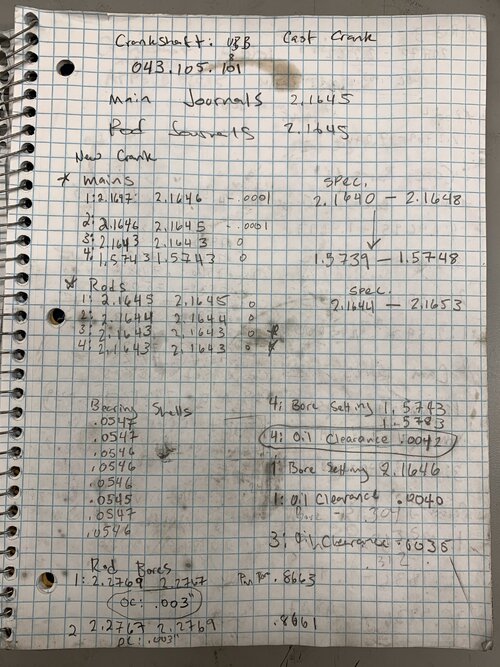 Crankshaft: VBB Cast Crank
043.105.101
8
Main Journals 2.1645
Rod Journals 2.1645
New Crank
* Mains
spec.
1: 2.1647 2.1646 -.0001
2.1640 - 2.1648
2: 2.1646 2.1645 -.0001
3: 2.1643 2.1643 0
4: 1.5743 1.5743 0
1.5739 - 1.5748
* Rods
spec.
1: 2.1645 2.1645 0
2.1644 - 2.1653
2: 2.1644 2.1644 0
3: 2.1643 2.1643 0 *
4: 2.1643 2.1643 0 *
Bearing Shells
.0547
.0547
.0546
.0546
.0546
.0545
.0547
.0546
4: Bore Setting 1.5743
1.5783
4: Oil Clearance .0042
1: Bore Setting 2.1646
1: Oil Clearance .0040
3: Oil Clearance .0035
.312
Rod Bores
1: 2.2769 2.2767 Pin Bor. .8663
OC: .003"
2 2.2767 2.2769 .8661
OC: .003"